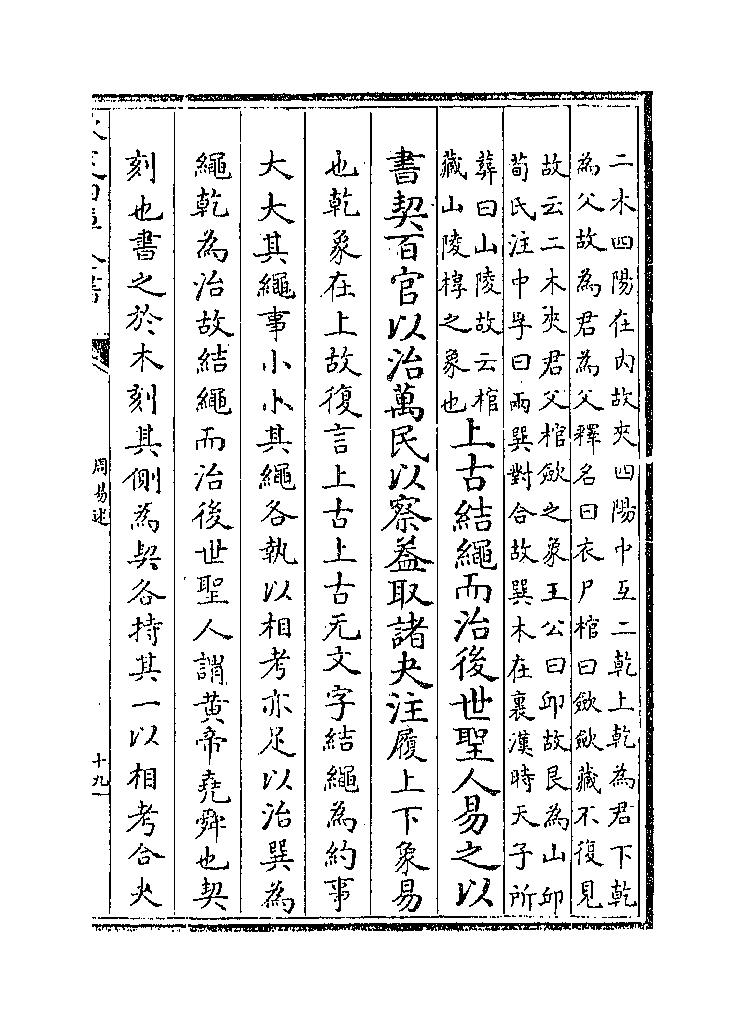 二木四陽在内故夾四陽中互二乾上乾為君下乾
為父故為君為父釋名曰衣尸棺曰斂斂藏不復見
故云二木夾君父棺斂之象王公曰邱故艮為山邱
荀氏注中孚曰兩巽對合故巽木在裏漢時天子所
葬曰山陵故云棺
藏山陵椁之象也
上古結繩而治後世聖人易之以
書契百官以治萬民以察葢取諸夬注履上下象易
也乾象在上故復言上古上古无文字結繩為約事
大大其繩事小小其繩各執以相考亦足以治巽為
繩乾為治故結繩而治後世聖人謂黄帝堯舜也契
刻也書之於木刻其側為契各持其一以相考合夬
周易述
十九